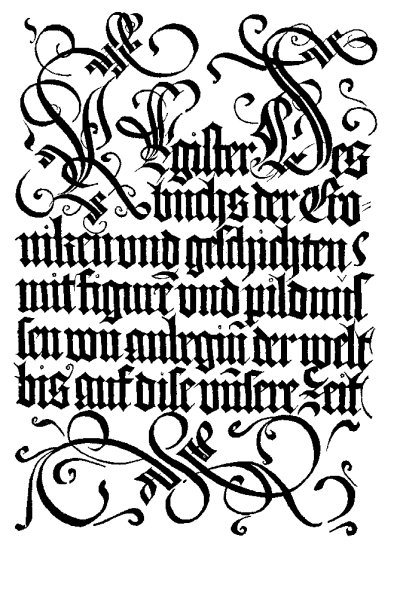 Register Des
buchs der Cro-
niken vnd geschichten
mit figurē vnd pildnus-
sen von anbegiñ der welt
bis auf dise vnsere Zeit